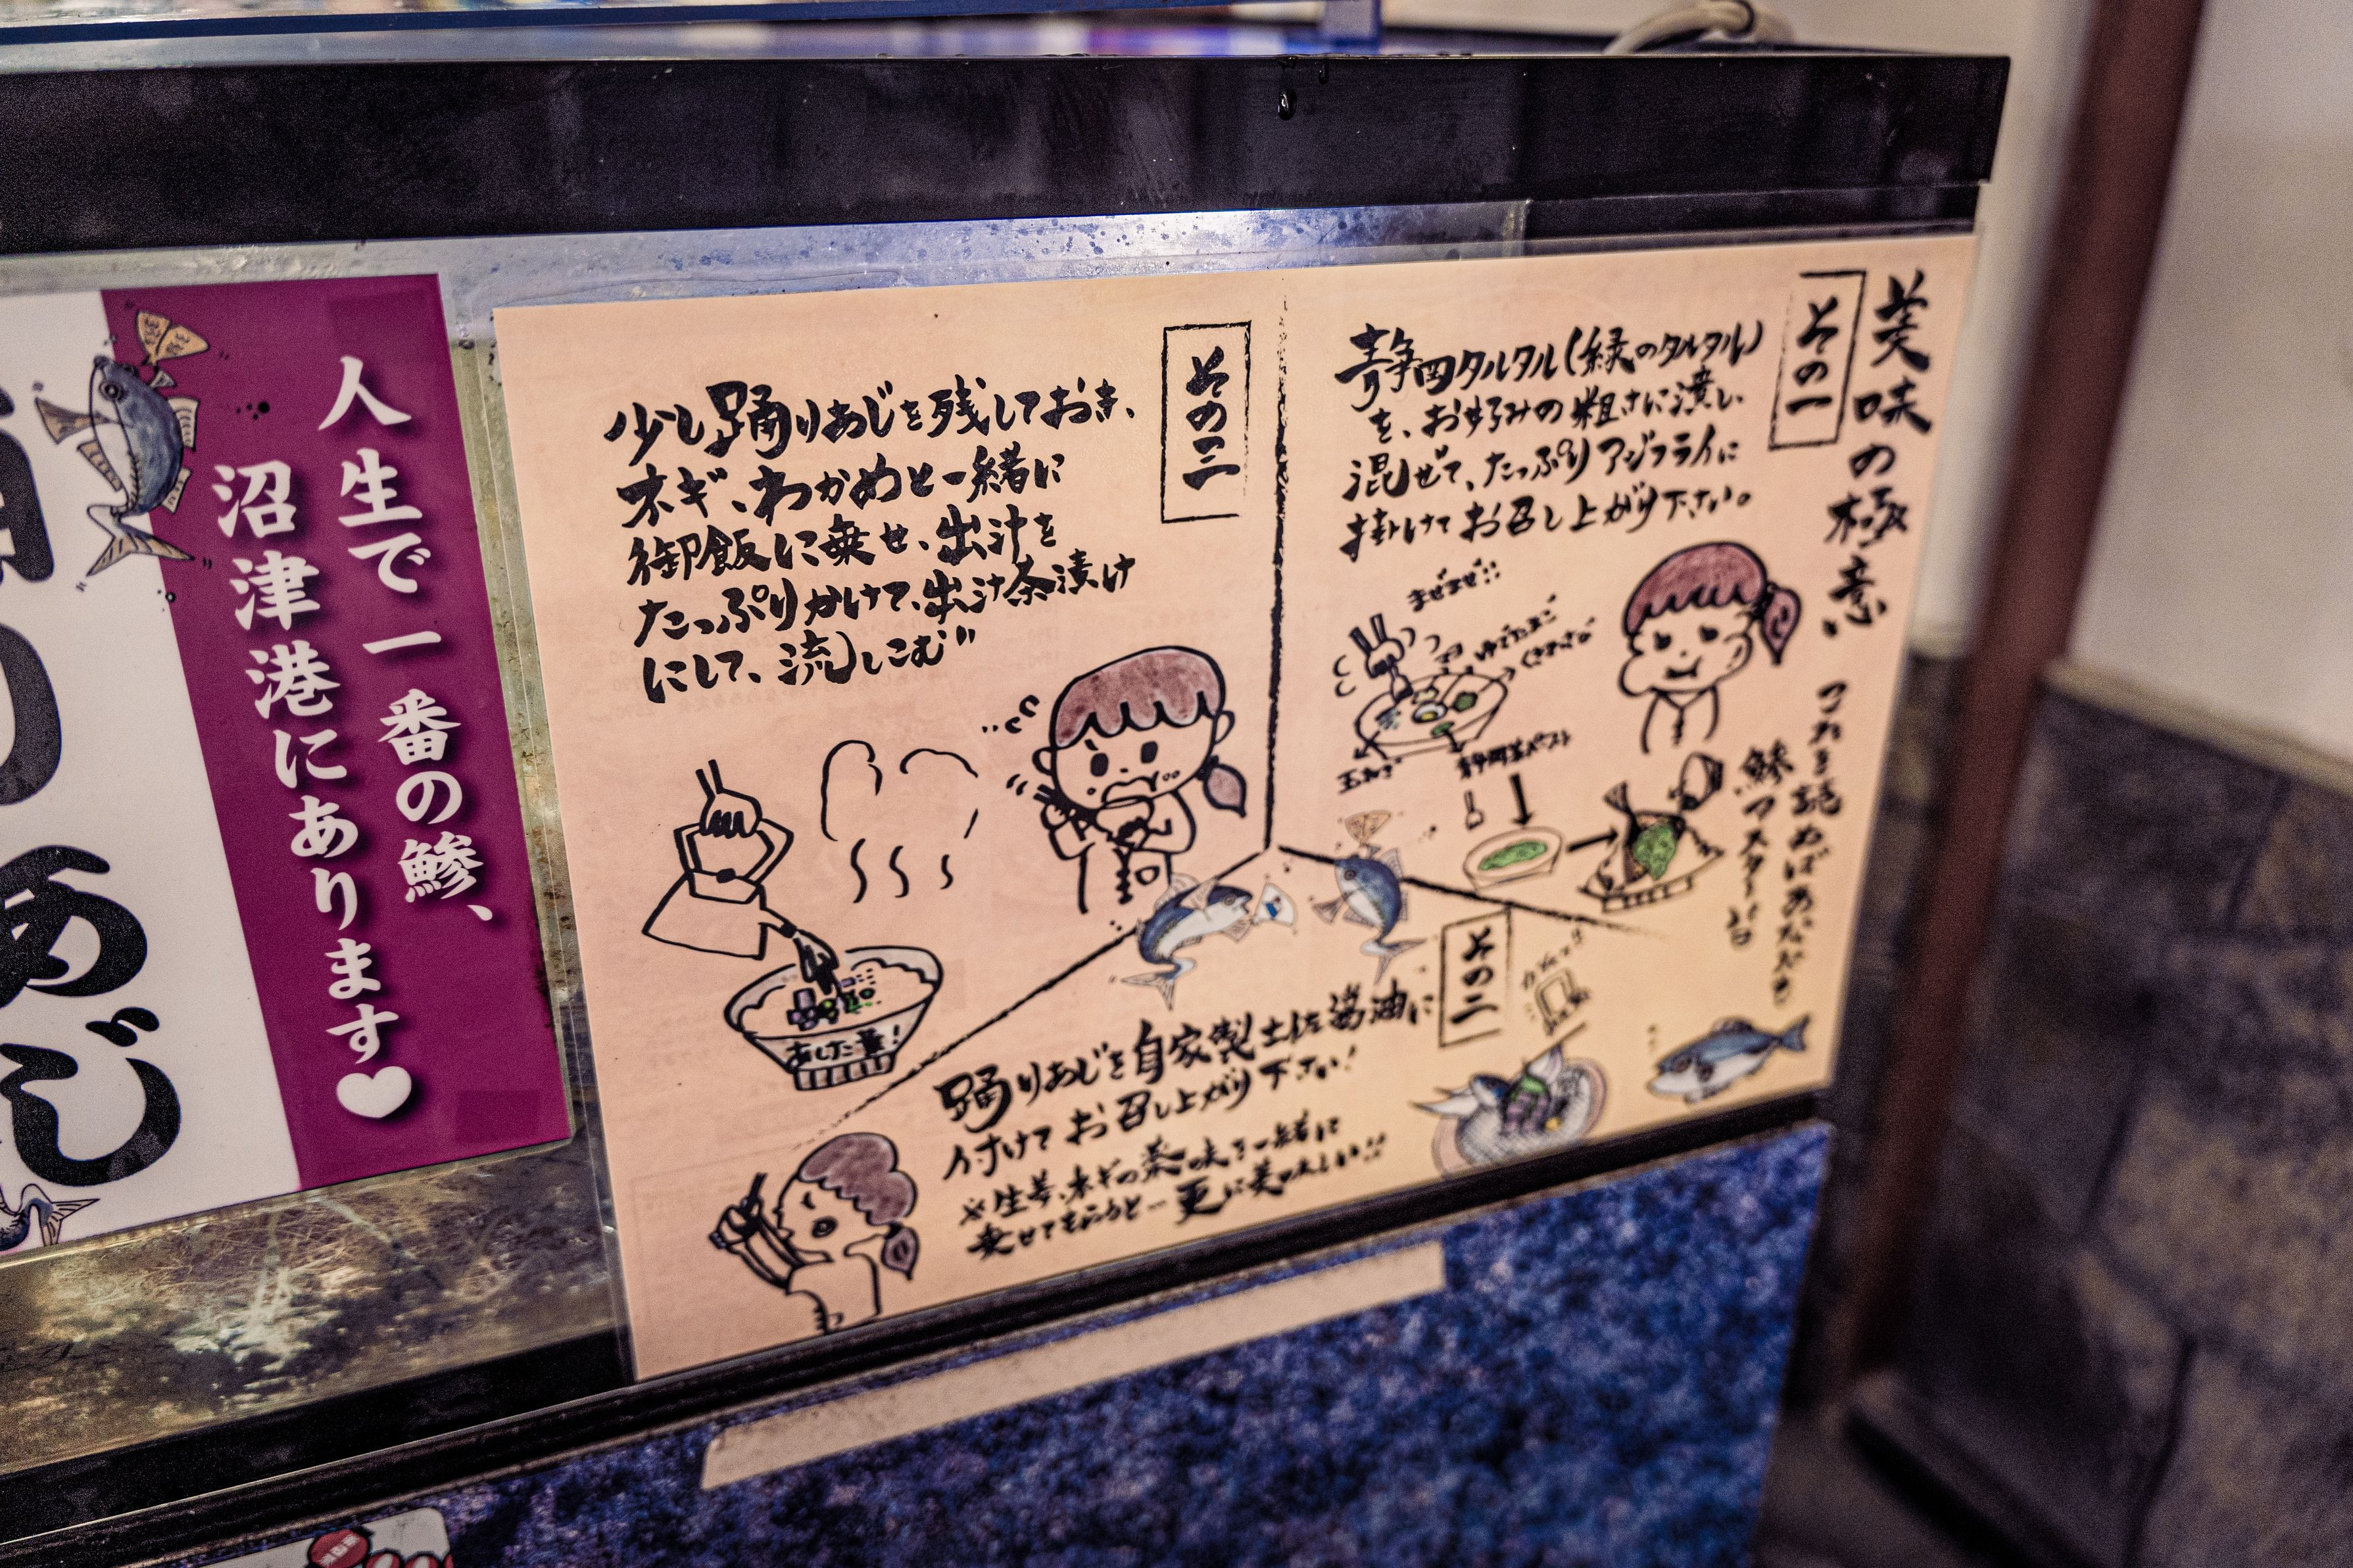 人生で一番の鯵、
沼津港にあります♥
りあじ
美味の極意
これを読めばあなたも
鯵マスター
その一
静岡タルタル(緑のタルタル)
を、お好みの粗さに潰し
混ぜて、たっぷりアジフライに
掛けてお召し上がり下さい。
まぜまぜ!!
ゆでたまご
玉ねぎ
静岡茶ペースト
その二
踊りあじを自家製土佐醤油に
付けてお召し上がり下さい!
※生姜、ネギの薬味を一緒に
乗せてもらうと…更に美味しい!!
その三
少し踊りあじを残しておき、
ネギ、わかめと一緒に
御飯に乗せ、出汁を
たっぷりかけて、出汁茶漬け
にして、流しこむ"
あした葉!